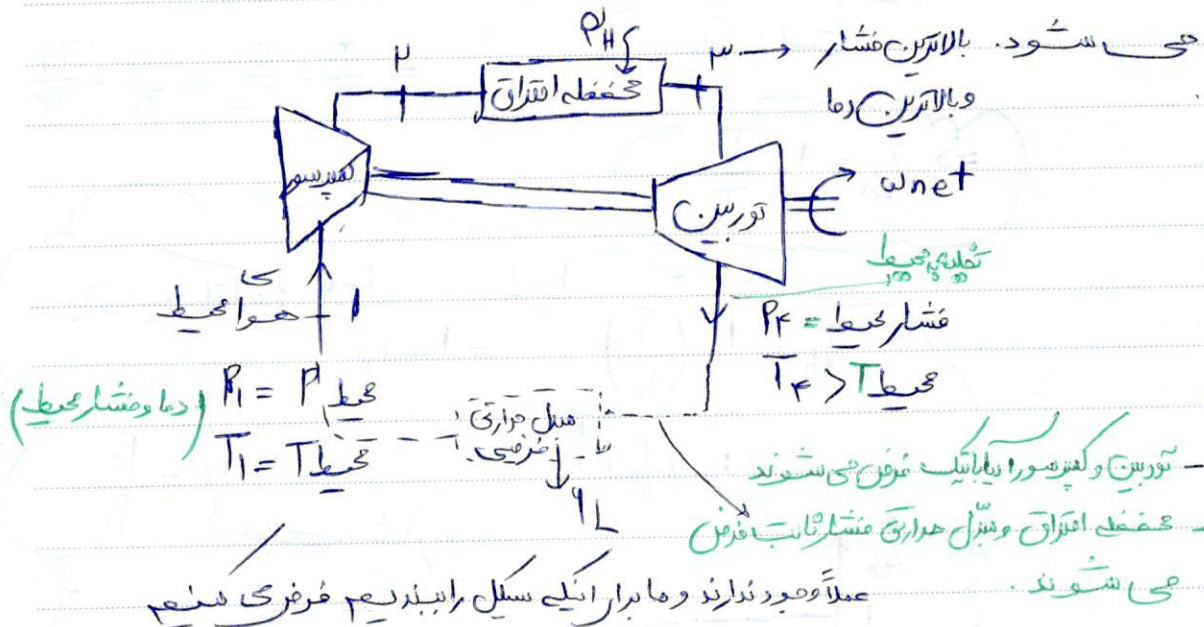 می شود. بالاترین فشار ← ۳
وبالاترین دما
qH
محفظه احتراق
۲
کمپرسور
توربین
wnet
تخلیه به محیط
هوا محیط
۱
P۴ = فشار محیط
T۴ > T محیط
P1 = P محیط
T1 = T محیط
(دما و فشار محیط)
مبدل حرارتی
فرضی
qL
- توربین و کمپرسور آدیاباتیک فرض می شوند
- محفظه احتراق و مبدل حرارتی فشار ثابت فرض
می شوند.
عملاً وجود ندارند و ما برای اینکه سیکل را ببندیم فرض می کنیم